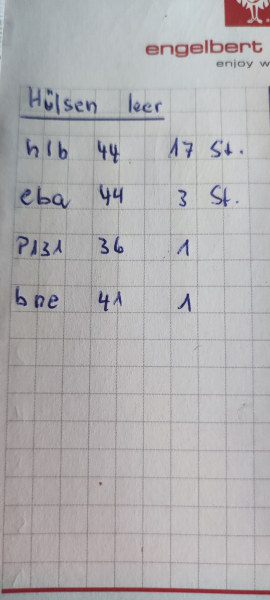 engelbert
enjoy w
Hülsen leer
hlb 44 17 St.
eba 44 3 St.
P131 36 1
bne 41 1